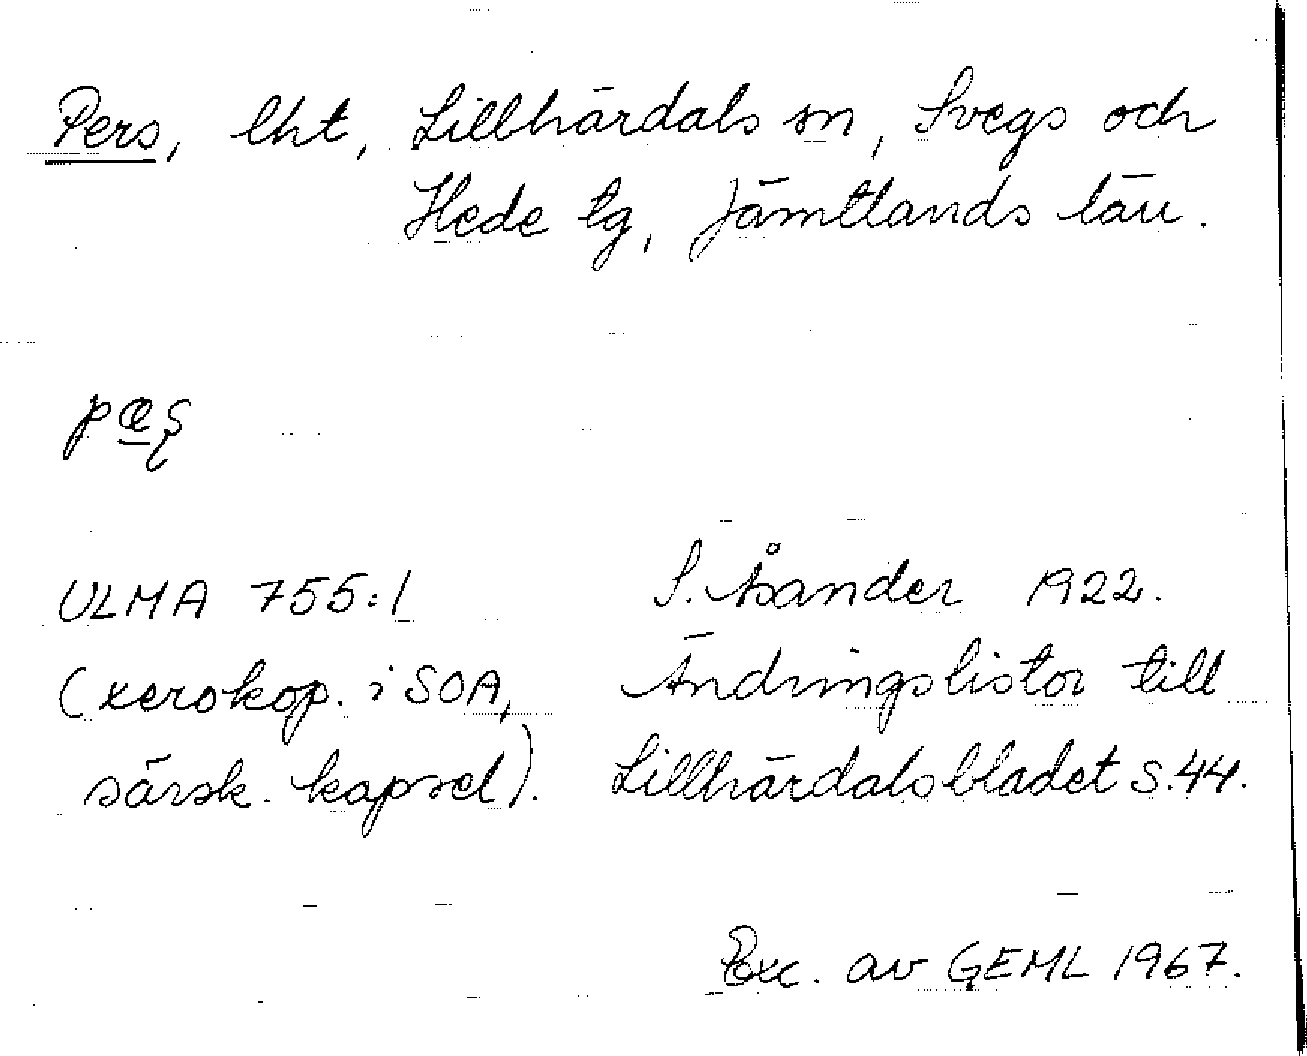 Pers, lht, Lillhärdals sn, Svegs och
Hede tg, Jämtlands län.
ULMA 755:1
(xerokop. i SOA,
särsk. kapsel).
S. Åsander 1922.
Ändringslistor till
Lillhärdalsbladet s. 44.
Exc. av GEML 1967.